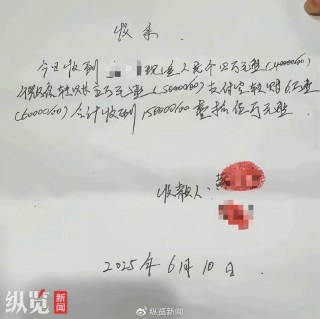 收条
今日收到 现金人民币四万元整(40000/00)
银行转账五万元整(50000/00)支付宝转账6万
(60000/00)合计收到150000/00 壹拾伍万元整
收款人:
2025年6月10日.
纵览
新闻
纵览新闻